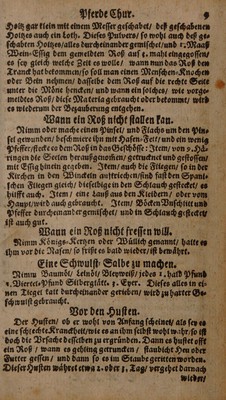 Pferds Chur. 9
Holtz gar klein mit einem Messer geschabet/ deß geschabenen
Holtzes auch ein Loth. Dieses Pulvers/ so wohl auch deß ge-
schaben Holtzes/alles durcheinander gemischet/und 2. Maaß
Wein-Essig dem gemeldten Roß auf 3. mahl eingegossen/
es sey gleich welche Zeit es wolle/ wann nun das Roß den
Tranck hat bekommen/so soll man einen Menschen-Knochen
oder Bein nehmen/ dasselbe dem Roß auf die rechte Seite
unter die Möne hencken/ und wann ein solches/ wie vorge-
meldtes Roß/ diese Materi gebraucht oder bekommt/ wird
es wiederum der Bezauberung entgehen.
Wann ein Roß nicht stallen kan.
Nimm oder mache einen Pinsel/ und Flachs um den Pin-
sel gewunden/ beschmiere ihn mit Hasen-Fett/ und ein wenig
Pfeffer/stecke es dem Roß in das Geschöße: Item/ von 2. Hä-
ringen die Seelen heraußgenommen/ getrucknet und gestossen/
mit Essig hinein gegeben. Item/ auch die Fliegen/ so in der
Kirchen in den Winckeln austriechen/sind fast den Spani-
schen Fliegen gleich/ diese fliegige in den Schlauch gestecket/ es
hilfft auch. Item/ eine Lauß aus den Kleidern/ oder vom
Haupt/wird auch gebraucht. Item/ Böcken Unschlitt und
Pfeffer durcheinander gemischet/ und in Schlauch gestecket/
ist auch gut.
Wann ein Roß nicht fressen will.
Nimm Königs-Kertzen oder Wüllich genannt/ halte es
ihm vor die Nasen/ so frist es bald wieder/ ist bewährt.
Eine Schwulst-Salbe zu machen.
Nimm Baumöl/ Leinöl/ Bleyweiß/ jedes 1. halb Pfund
1. Viertel-Pfund Silberglätt. 3. Eyer. Dieses alles in ei-
nen Tiegel satt durcheinander gerieben/ wird zu harter Ge-
schwulst gebraucht.
Vor den Husten.
Der Husten/ ob er wohl von Anfang scheinet/ als sey es
eine schlechte Kranckheit/wie es an ihm selbst wohl wahr/so ist
doch die Ursache desselben zu ergründen. Dann es hustet offt
ein Roß/ wann es gehling getruncken/ staubicht Heu oder
Futter gessen/ und dann so im Staube geritten worden.
Dieser Husten währet etwa 2. oder 3. Tag/ vergehet darnach
wieder/